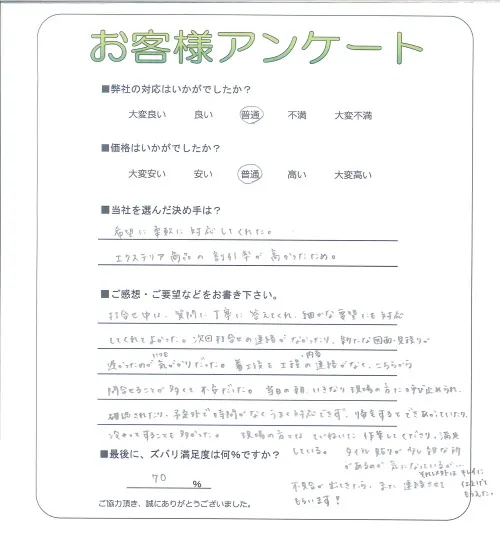 お客様アンケート
■弊社の対応はいかがでしたか？
大変良い 良い 普通 不満 大変不満
■価格はいかがでしたか？
大変安い 安い 普通 高い 大変高い
■当社を選んだ決め手は？
希望に柔軟に対応してくれた。
エクステリア商品の割引率が高かったため。
■ご感想・ご要望などをお書き下さい。
打合せ中は、質問に丁寧に答えてくれ、細かな要望にも対応
してくれてよかった。次回打合せの連絡がなかったり、新たな図面・見積りが
遅かったのが気がかりだった。着工後も工程・内容の連絡がなく、こちらから
いつも
問合せることが多くて不安だった。当日の朝、いきなり現場の方に呼び止められ、
確認されたり、予定外で時間がなくうまく対応できず、帰宅するとできあがっていたり、
決めてすることも多かった。 現場の方々は ていねいに作業してくださり、満足
している。 タイル貼りが少し雑な所
があるのが気になっているが…
それ以外は キレイに
仕上げて
もらえた。
不具合が出てきたら、また連絡させて
もらいます！
■最後に、ズバリ満足度は何％ですか？
70 ％
ご協力頂き、誠にありがとうございました。